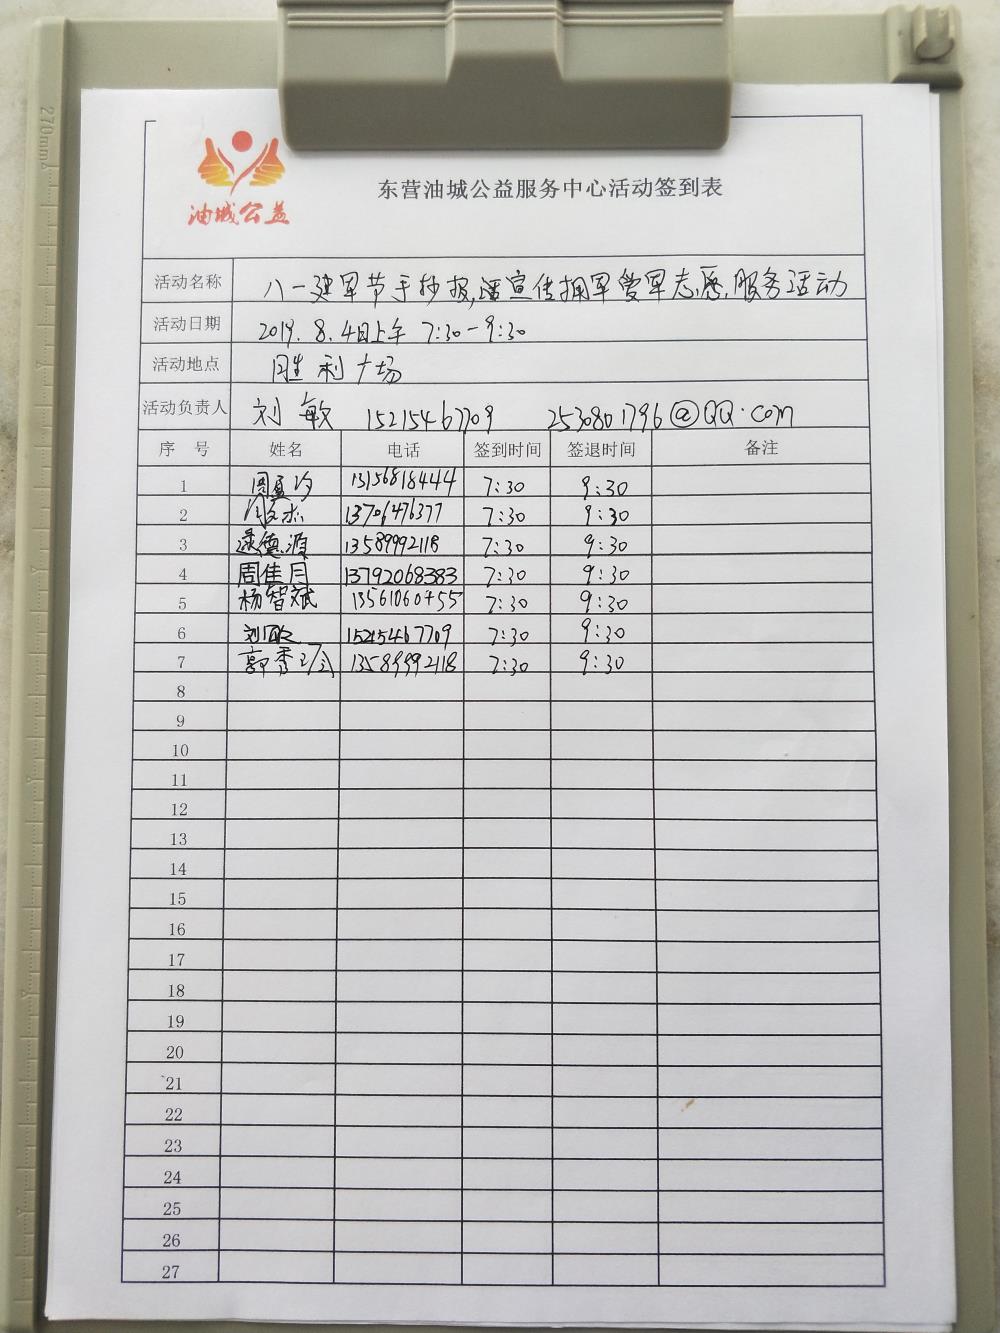 270mm
油城公益
东营油城公益服务中心活动签到表
活动名称 八一建军节手抄报,宣传拥军爱军志愿服务活动
活动日期 2019.8.4日上午 7:30-9:30
活动地点 胜利广场
活动负责人 刘敏 15215467709 2530801796@QQ.com
序号 姓名 电话 签到时间 签退时间 备注
1 13156818444 7:30 9:30
2 13706476377 7:30 9:30
3 逯德源 13589992118 7:30 9:30
4 周佳月 13792068383 7:30 9:30
5 杨智斌 13561060455 7:30 9:30
6 刘敏 15215467709 7:30 9:30
7 郭秀 13589992118 7:30 9:30
8
9
10
11
12
13
14
15
16
17
18
19
20
21
22
23
24
25
26
27